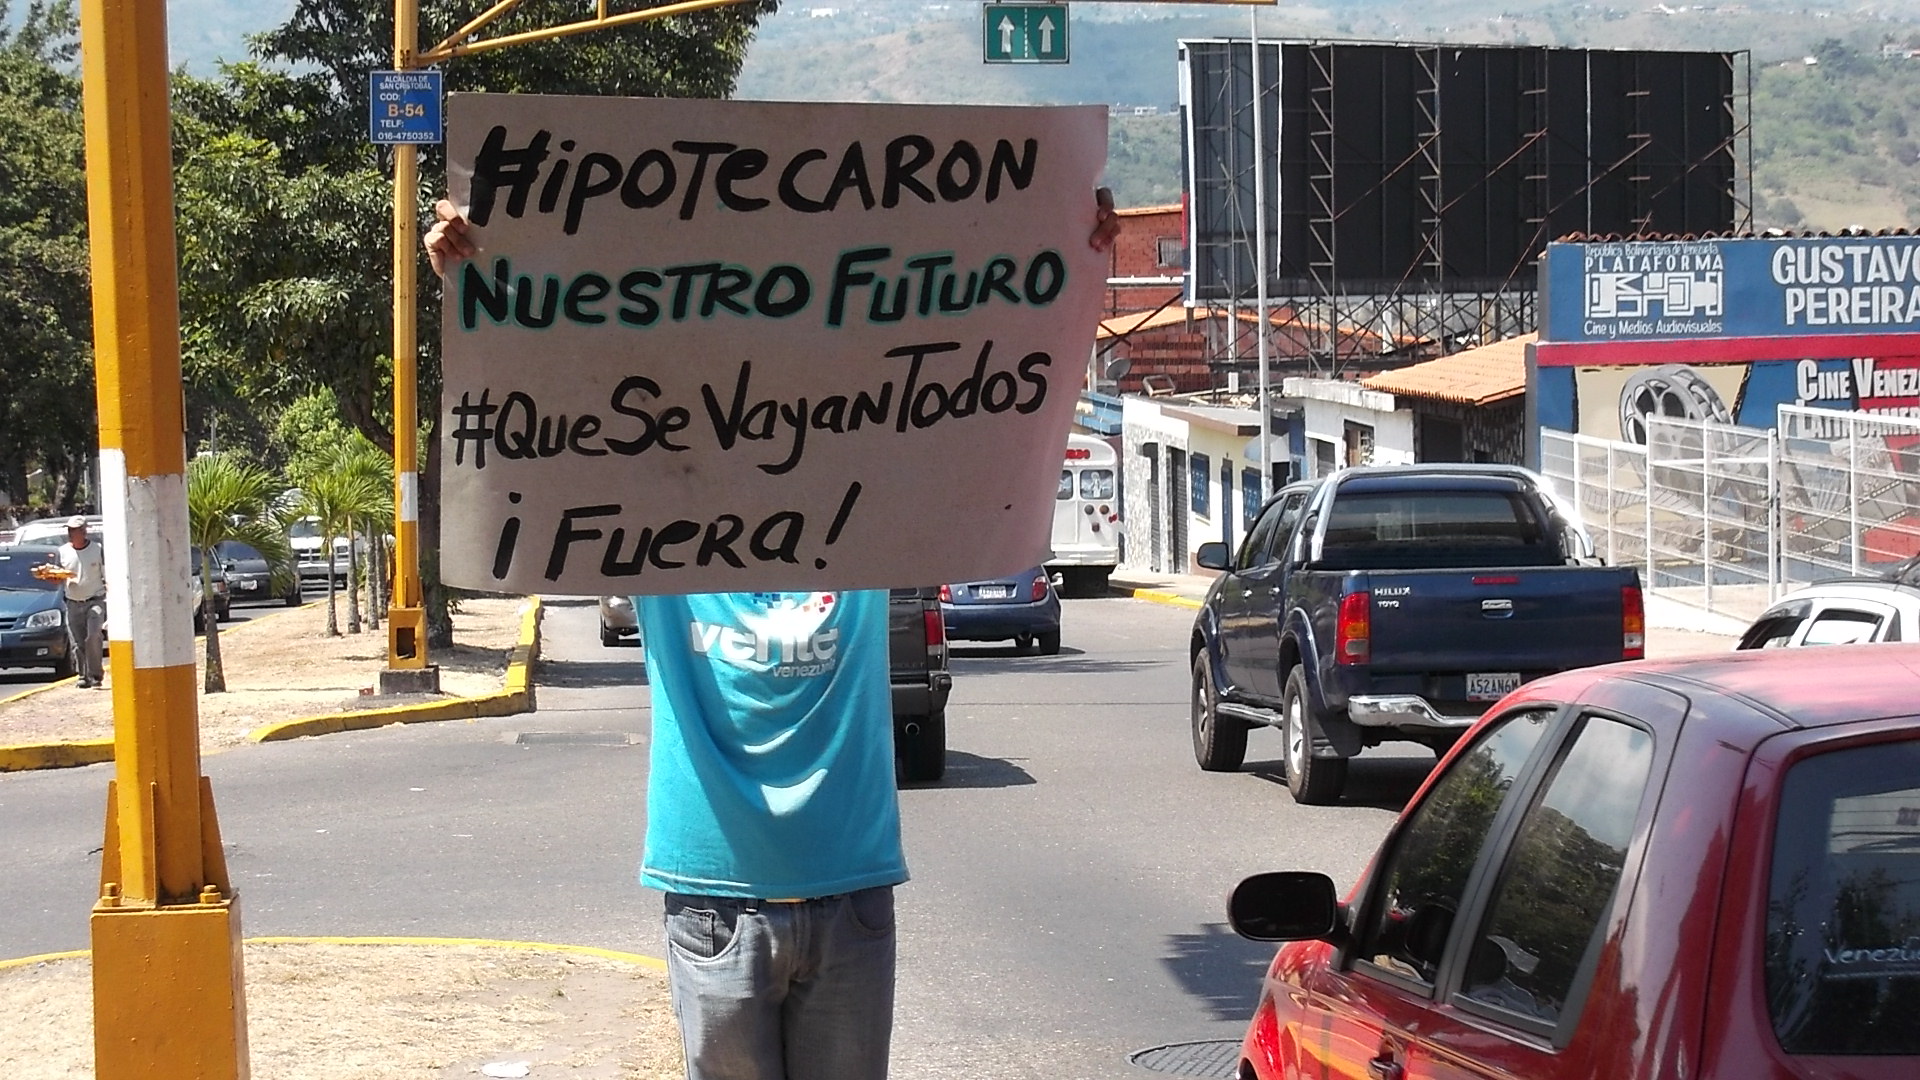 ALCALDIA DE
SAN CRISTOBAL
COD:
B-54
TELF:
016-4750352
#HipoTeCARON
NuesTRO FuTuRO
#QueSeVayanTodos
¡FueRa!
vente
venezuela
República Bolivariana de Venezuela
PLATAFORMA
Cine y Medios Audiovisuales
GUSTAVO
PEREIRA
CINE
HILUX
TOYO
A52AN6M